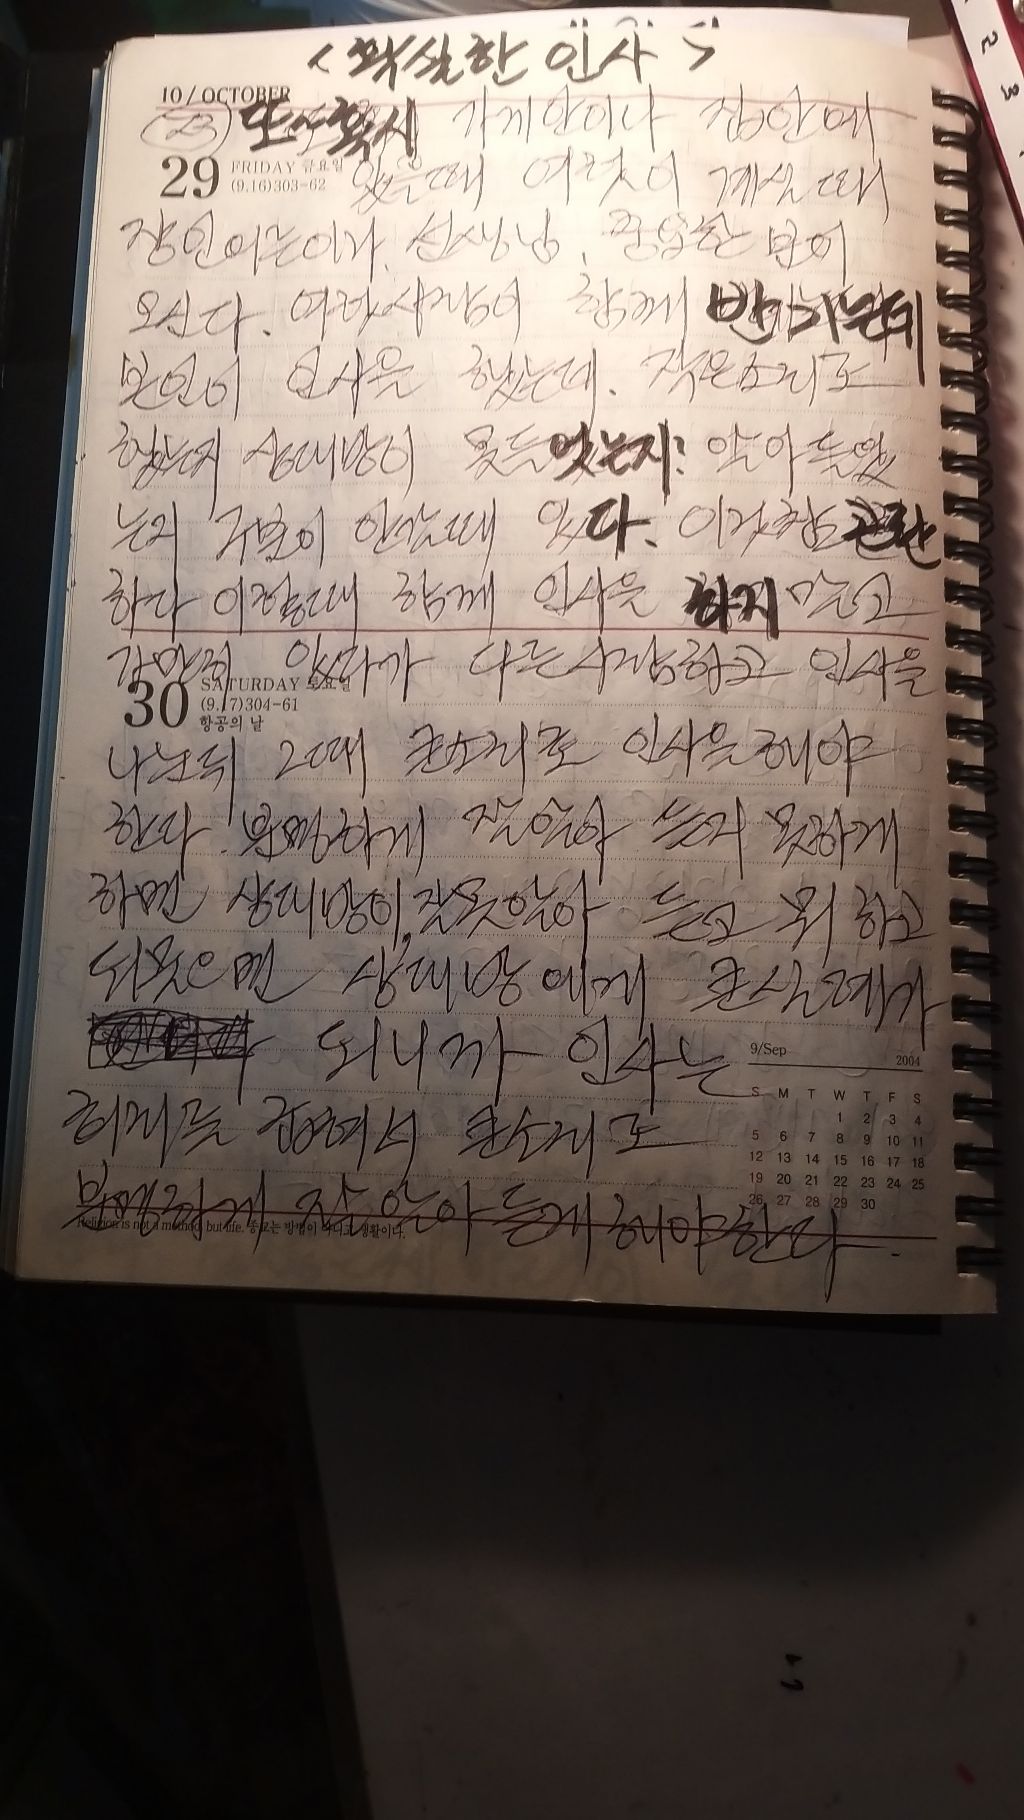 <확실한 인사>
10/OCTOBER
(23) 또~혹시 가게안이나 집안에
29 FRIDAY 금요일
(9.16)303-62
있을때 여럿이 계실때
장인어른이나. 선생님. 중요한 분이
오신다. 여럿사람이 함께 반기는데
본인이 인사을 했는데. 작은소리로
했는지 상대방이 못들었는지: 알아들었
는지 구분이 안갈때 있다. 이것참 곤란
하다 이런때 함께 인사을 하지 말고
가만히 있다가 다른사람하고 인사을
30 SATURDAY 토요일
(9.17)304-61
항공의 날
나눈뒤 그때 큰소리로 인사을해야
한다. 분명하게 잘알아 듣지 못하게
하면 상대방이, 잘못알아 듣고 뭐 하고
되물으면 상대방에게 큰실례가
되니까 인사는
허리를 굽혀서 큰소리로
분명하게 잘 알아 듣게 해야한다.
9/Sep 2004
S M T W T F S
1 2 3 4
5 6 7 8 9 10 11
12 13 14 15 16 17 18
19 20 21 22 23 24 25
26 27 28 29 30
Religion is not a method, but life. 종교는 방법이 아니고 생활이다.
2
3